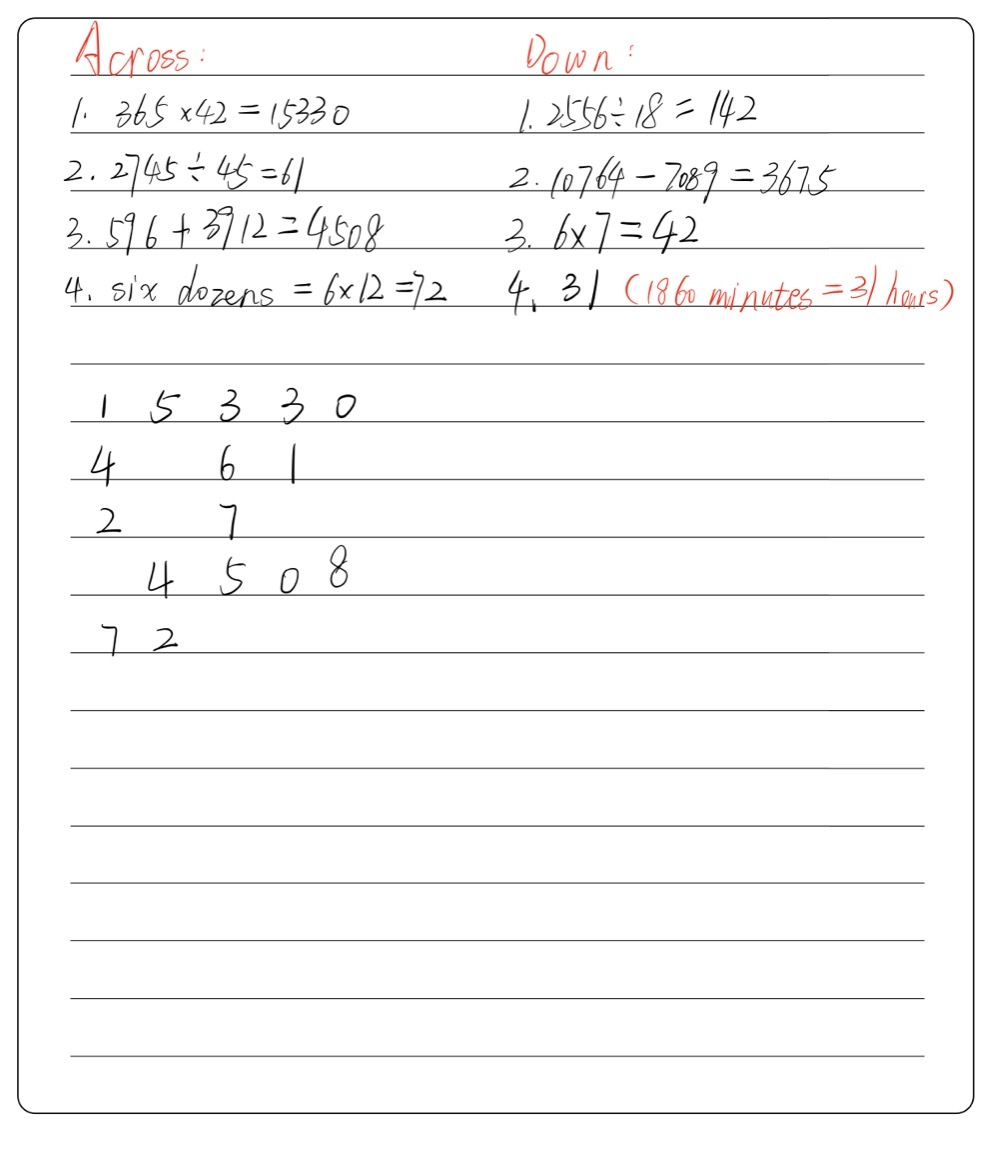 Across: Down:
1. 365 × 42 = 15330 1. 2556 ÷ 18 = 142
2. 2745 ÷ 45 = 61 2. 10764 - 7089 = 3675
3. 596 + 3912 = 4508 3. 6×7 = 42
4. six dozens = 6×12 = 72 4. 31 (1860 minutes = 31 hours)
1 5 3 3 0
4 6 1
2 7
4 5 0 8
7 2